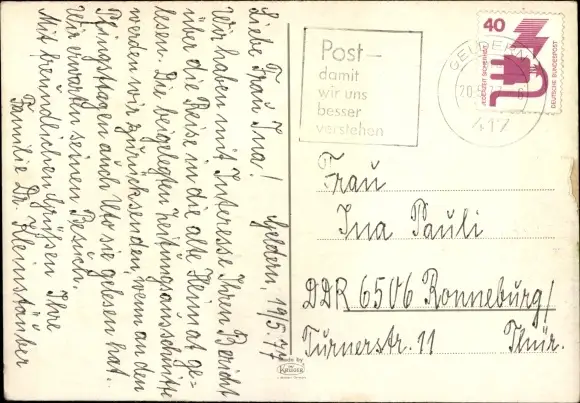 Geldern, 19.5.77
Liebe Frau Ina!
Wir haben mit Interesse Ihren Bericht
über die Reise in die alte Heimat ge=
lesen. Die beigelegten Zeitungsausschnitte
werden wir zurücksenden, wenn an den
Pfingsttagen auch Uto sie gelesen hat.
Wir erwarten seinen Besuch.
Mit freundlichen Grüßen Ihre
Familie Dr. Kleinstäuber
Post –
damit
wir uns
besser
verstehen
GELDERN
20.5.77
417
40
JEDERZEIT SICHERHEIT
DEUTSCHE BUNDESPOST
Frau
Ina Pauli
DDR 6506 Ronneburg/
Turnerstr. 11 Thür.
made by
KRÜGER